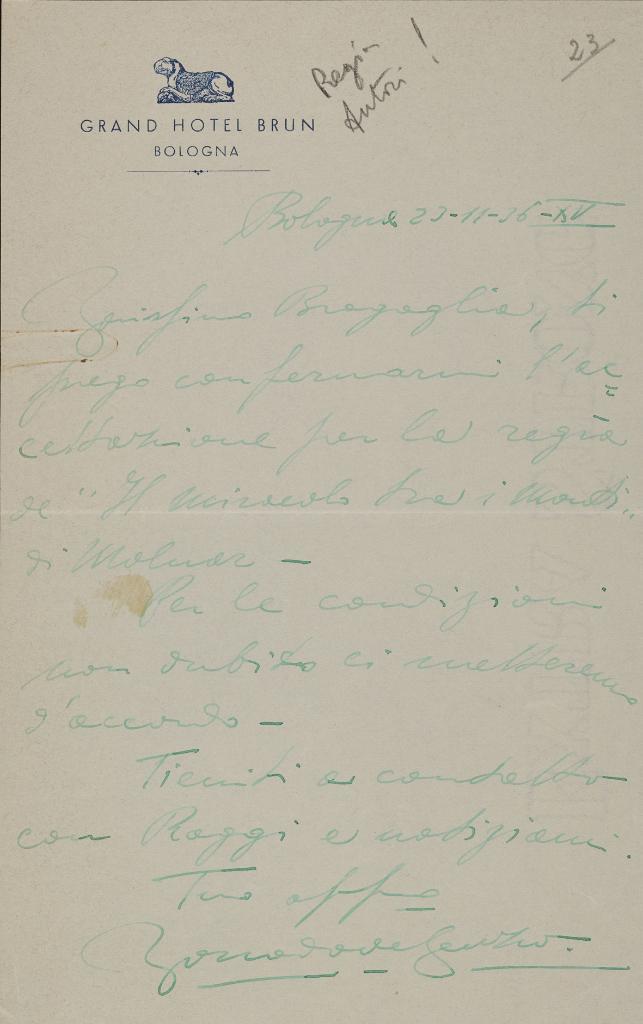 GRAND HOTEL BRUN
BOLOGNA
Regia
Autori!
23
Bologna 23-11-36-XV
Carissimo Bragaglia, ti
prego confermarmi l'ac=
cettazione per la regia
de "Il miracolo tra i monti"
di Molnar -
Per le condizioni
non dubito ci metteremo
d'accordo -
Tieniti a contatto
con Raggi e notiziami.
Tuo affmo